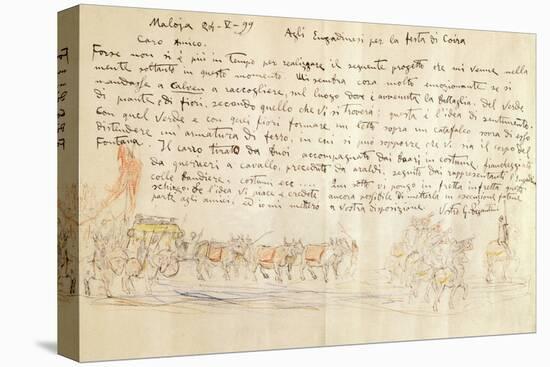 Maloja 24-V-99 Agli Engadinesi per la festa di Coira
Caro Amico.
Forse non si è più in tempo per realizzare il seguente progetto che mi venne nella
mente soltanto in questo momento. Mi sembra cosa molto emozionante se si
mandasse a Calven a raccogliere, sul luogo dove è avvenuta la battaglia, del verde
di piante, di fiori, secondo quello che vi si troverà: questa è l'idea di sentimento.
Con quel verde e con quei fiori formare un letto sopra un catafalco sovra di esso
distendere un'armatura di ferro, in cui si può supporre che vi sia il corpo del
Fontana. Il carro tirato da buoi accompagnato dai in costume, fiancheggiato
da guerrieri a cavallo, preceduto da araldi, seguito dai rappresentanti
colle bandiere, costumi ecc.... Qui sotto vi pongo in fretta in fretta questo
schizzo. Se l'idea vi piace e credete ancora possibile di metterla in esecuzione
parte agli amici, ed io mi metterò a vostra disposizione Vostro G. Segantini